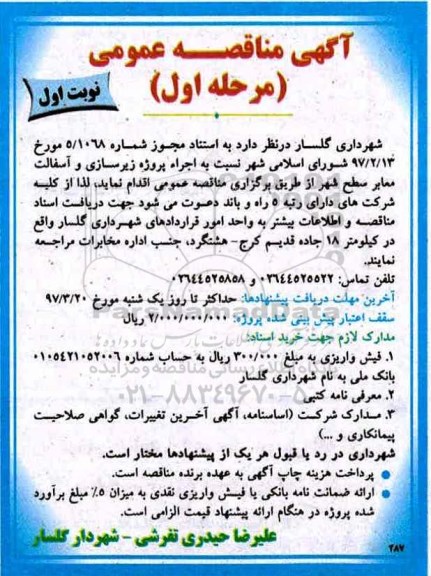 آگهی مناقصه عمومی
(مرحله اول)
نوبت اول
شهرداری گلسار درنظر دارد به استناد مجوز شماره ۵/۱۰۶۸ مورخ
۹۷/۲/۱۳ شورای اسلامی شهر نسبت به اجراء پروژه زیرسازی و آسفالت
معابر سطح شهر از طریق برگزاری مناقصه عمومی اقدام نماید، لذا از کلیه
شرکت های دارای رتبه ۵ راه و باند دعوت می شود جهت دریافت اسناد
مناقصه و اطلاعات بیشتر به واحد امور قراردادهای شهرداری گلسار واقع
در کیلومتر ۱۸ جاده قدیم کرج- هشتگرد، جنب اداره مخابرات مراجعه
نمایند.
تلفن تماس: ۰۲۶۴۴۵۲۵۵۲۲ و ۰۲۶۴۴۵۲۵۸۵۸
آخرین مهلت دریافت پیشنهادها: حداکثر تا روز یک شنبه مورخ ۹۷/۳/۲۰
سقف اعتبار پیش بینی شده پروژه: ۲/۰۰۰/۰۰۰/۰۰۰ ریال
مدارک لازم جهت خرید اسناد:
۱. فیش واریزی به مبلغ ۳۰۰/۰۰۰ ریال به حساب شماره ۰۱۰۵۴۲۱۰۵۲۰۰۶
بانک ملی به نام شهرداری گلسار
۲. معرفی نامه کتبی
۳. مدارک شرکت (اساسنامه، آگهی آخرین تغییرات، گواهی صلاحیت
پیمانکاری و ...)
شهرداری در رد یا قبول هر یک از پیشنهادها مختار است.
● پرداخت هزینه چاپ آگهی به عهده برنده مناقصه است.
● ارائه ضمانت نامه بانکی یا فیش واریزی نقدی به میزان ۵٪ مبلغ برآورد
شده پروژه در هنگام ارائه پیشنهاد قیمت الزامی است.
علیرضا حیدری تفرشی - شهردار گلسار
۲۸۷
ParsNamadData
پایگاه اطلاع رسانی مناقصه و مزایده
۰۲۱-۸۸۳۴۹۶۷۰-۵